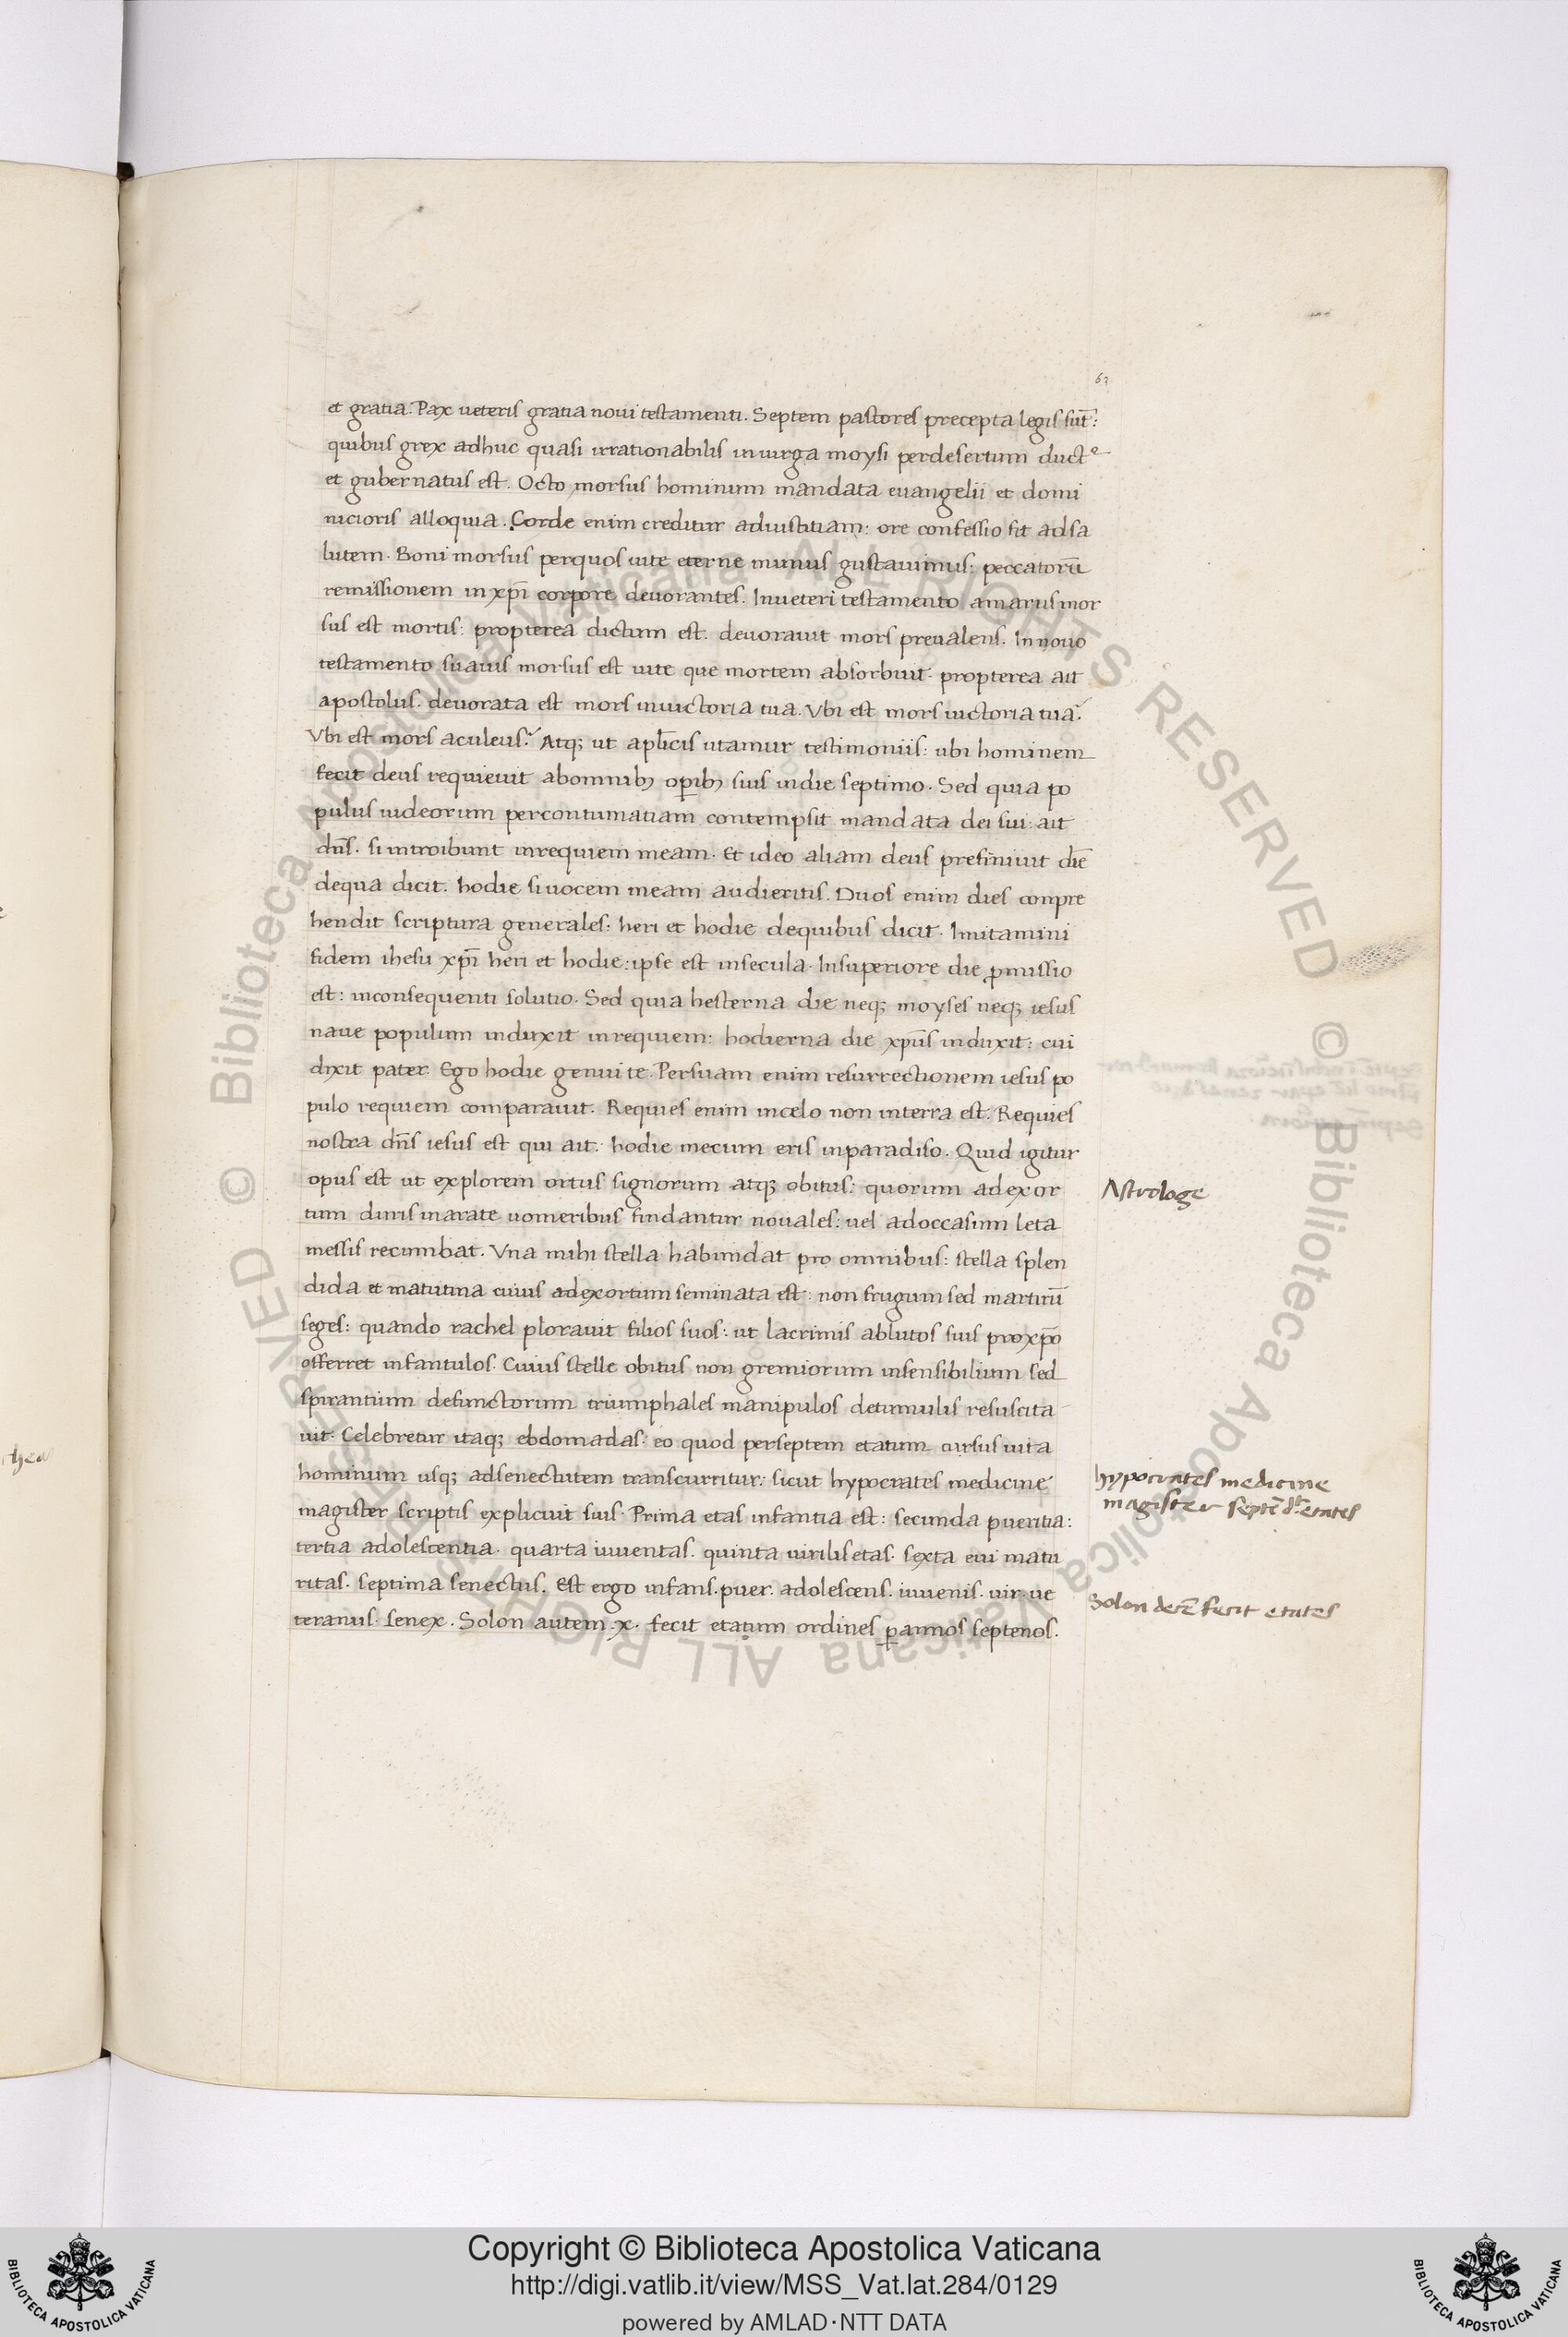 63
et gratia. Pax ueteris gratia noui testamenti. Septem pastores precepta legis sut̄:
quibus grex adhuc quasi irrationabilis inuirga moysi perdesertum duct
et gubernatus est. Octo morsus hominum mandata euangelii et domi
nicioris alloquia. Corde enim creditur adiustitiam: ore confessio fit adsa
lutem. Boni morsus perquos uite eterne munus gustauimus: peccatorū
remissionem inxp̄i corpore deuorantes. Inueteri testamento amarus mor
sus est mortis: propterea dictum est. deuorauit mors preualens. In nouo
testamento suauis morsus est uite que mortem absorbuit. propterea ait
apostolus. deuorata est mors inuictoria tua. Vbi est mors uictoria tua?
Vbi est mors aculeus? Atq; ut apl̄icis utamur testimoniis: ubi hominem
fecit deus requieuit abomnib; op̄ib; suis indie septimo. Sed quia po
pulus iudeorum percontumatiam contempsit mandata dei sui: ait
dn̄s. si introibunt inrequiem meam. Et ideo aliam deus prefiniuit diē
dequa dicit. hodie siuocem meam audieritis. Duos enim dies conpre
hendit scriptura generales: heri et hodie dequibus dicit. Imitamini
fidem ihesu xp̄i heri et hodie: ipse est insecula. Insuperiore die ꝓmissio
est: inconsequenti solutio. Sed quia hesterna die neq; moyses neq; iesus
naue populum induxit inrequiem: hodierna die xp̄us induxit: cui
dixit pater. Ego hodie genui te. Persuam enim resurrectionem iesus po
pulo requiem comparauit. Requies enim incelo non interra est. Requies
nostra dn̄s iesus est qui ait. hodie mecum eris inparadiso. Quid igitur
opus est ut explorem ortus signorum atq; obitus: quorum adexor
tum duris inarate uomeribus findantur nouales: uel adoccasum leta
messis recumbat. Vna mihi stella habundat pro omnibus: stella splen
dida et matutina cuius adexortum seminata est: non frugum sed martirū
seges: quando rachel plorauit filios suos: ut lacrimis ablutos suis proxp̄o
offerret infantulos. Cuius stelle obitus non gremiorum insensibilium sed
spirantium defunctorum triumphales manipulos detumulis resuscita
uit. Celebretur itaq; ebdomadas: eo quod perseptem etatum cursus uita
hominum usq; adsenectutem transcurritur: sicut hypocrates medicine
magister scriptis explicuit suis. Prima etas infantia est: secunda pueritia:
tertia adolescentia. quarta iuuentas. quinta uirilis etas. sexta eui matu
ritas. septima senectus. Est ergo infans. puer. adolescens. iuuenis. uir. ue
teranus. senex. Solon autem .x. fecit etatum ordines ꝑannos septenos.
Astrologe
hypocrates medicine
magister septē etates
Solon decē fecit etates
Biblioteca Apostolica Vaticana ALL RIGHTS RESERVED ©
Biblioteca Apostolica Vaticana ALL RIGHTS RESERVED ©
Copyright © Biblioteca Apostolica Vaticana
http://digi.vatlib.it/view/MSS_Vat.lat.284/0129
powered by AMLAD·NTT DATA
BIBLIOTECA APOSTOLICA VATICANA
BIBLIOTECA APOSTOLICA VATICANA